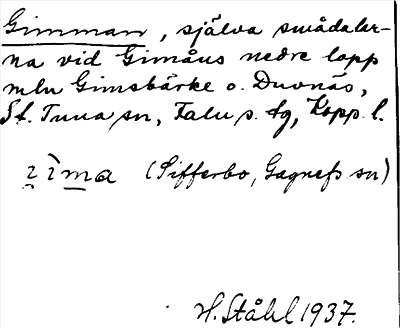 Gimman, själva smådalar-
na vid Gimåns nedre lopp
mln Gimsbärke o. Duvnäs,
St. Tuna sn, Falu s. fg, Kopp. l.
ì̀ma (Sifferbo, Gagnefs sn)
H. Ståhl 1937.